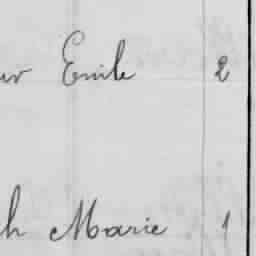 ur Emile 2
h Marie 1